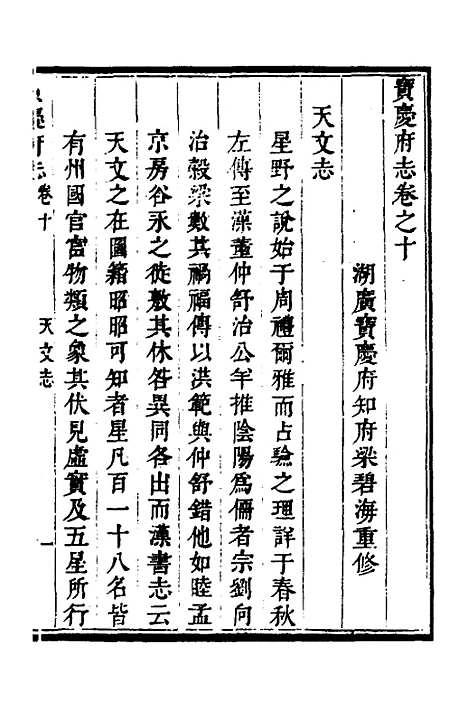 寶慶府志卷之十
湖廣寶慶府知府梁碧海重修
天文志
星野之說始于周禮爾雅而占驗之理詳于春秋
左傳至漢董仲舒治公羊推陰陽爲儒者宗劉向
治榖梁數其禍福傳以洪範與仲舒錯他如睦孟
京房谷永之徒數其休咎異同各出而漢書志云
天文之在圖籍昭昭可知者星凡百一十八名皆
有州國官宮物類之象其伏見虛實及五星所行
慶府志 卷十 天文志 一